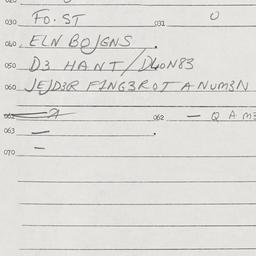 030 FO. ST 031 0
040 ELN BOJGNS .
050 D3 HANT/D40N83
060 JEJD3R F1NG3ROT A NUM3N
062 — Q A M3
063 —
070 —